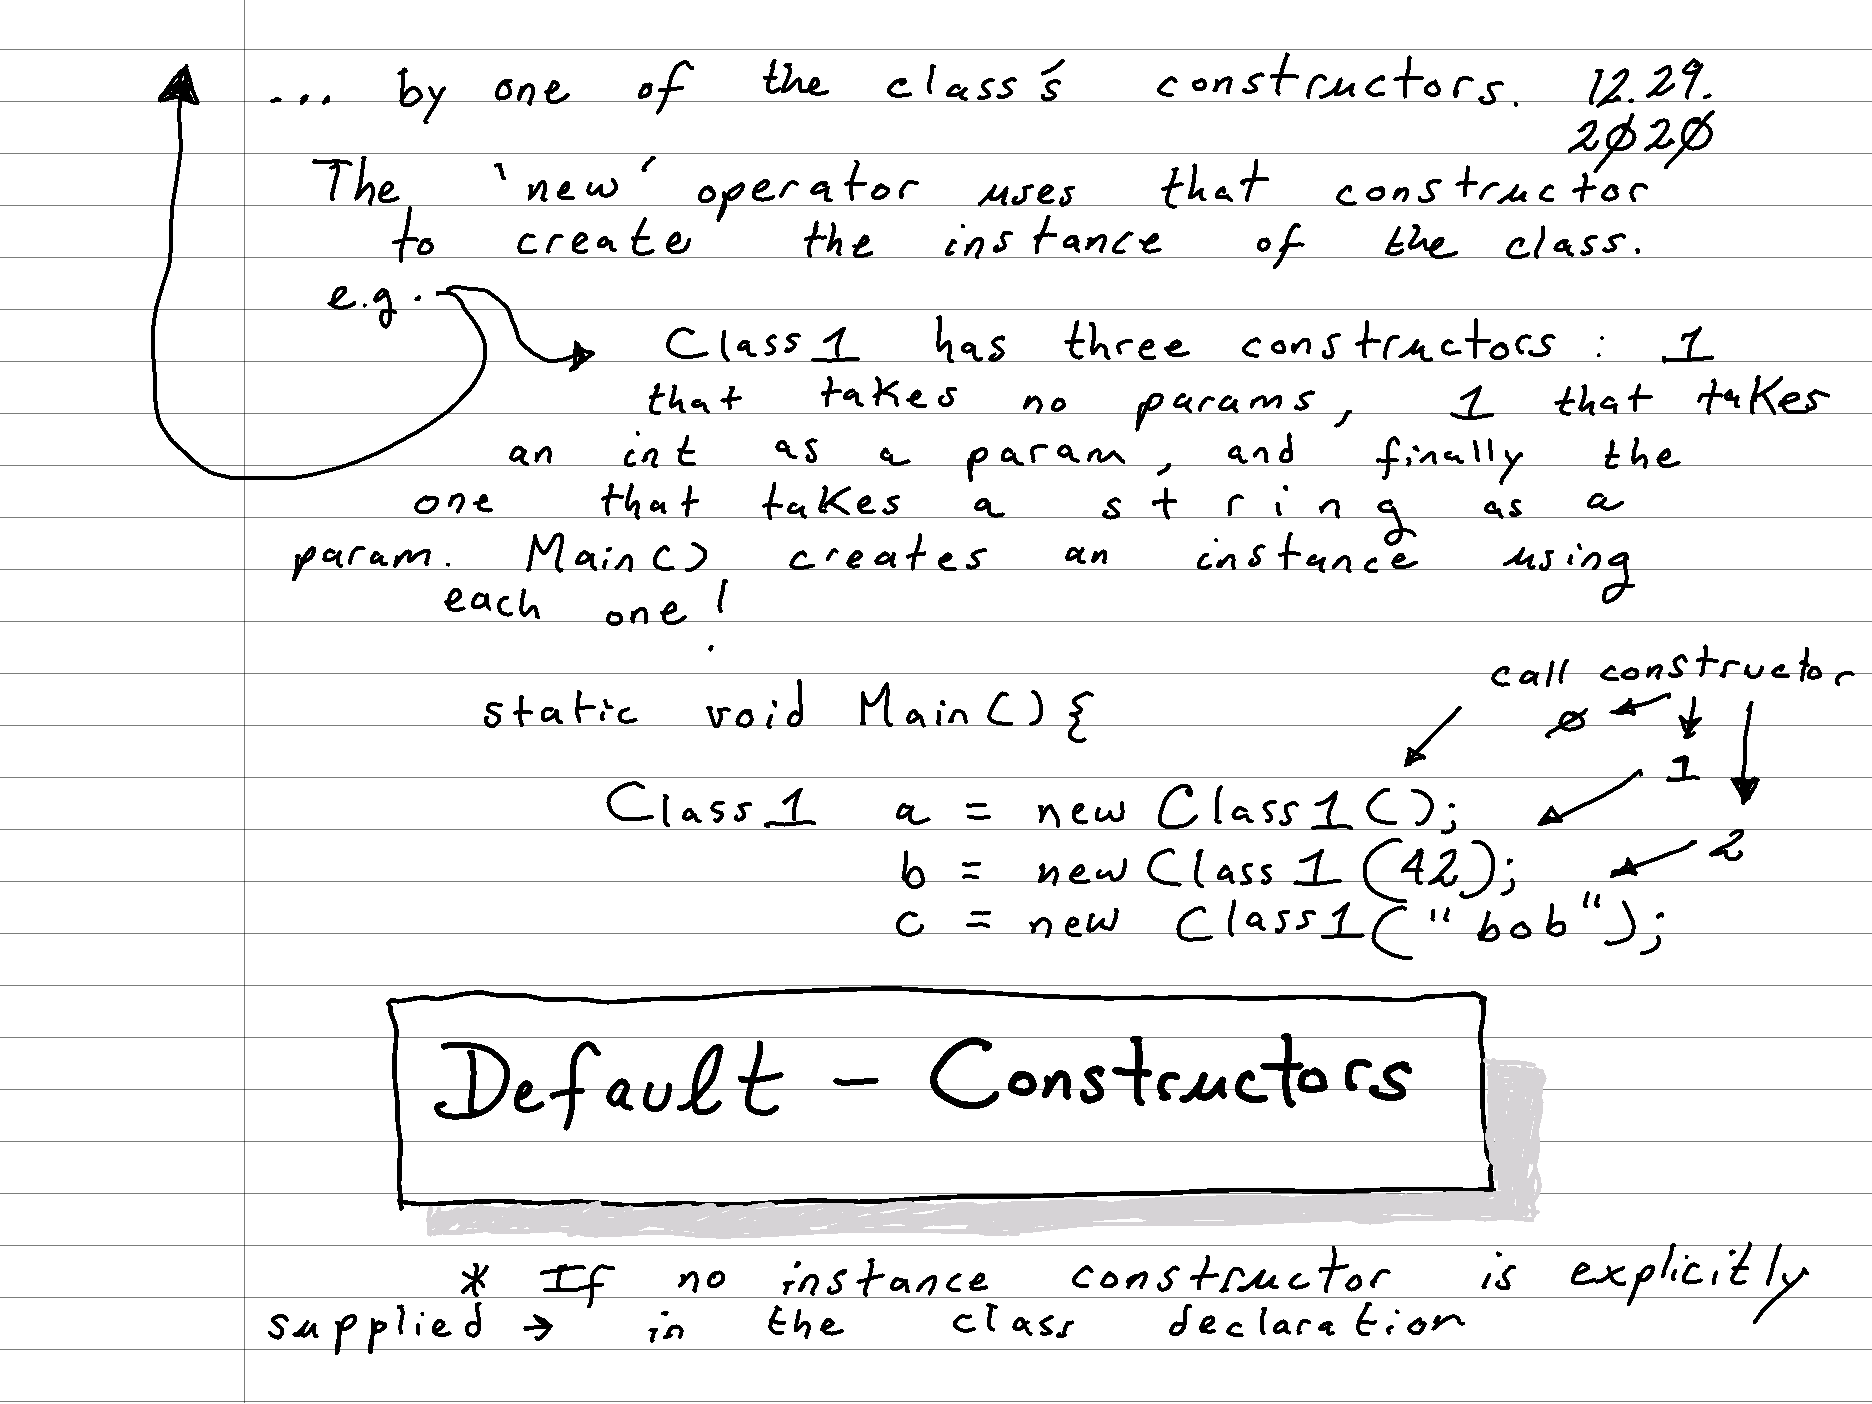 ... by one of the class's constructors. 12.29.
2020
The 'new' operator uses that constructor
to create the instance of the class.
e.g.
Class1 has three constructors: 1
that takes no params, 1 that takes
an int as a param, and finally the
one that takes a string as a
param. Main() creates an instance using
each one!
call constructor
static void Main(){
0
1
Class1 a = new Class1();
2
b = new Class1(42);
c = new Class1("bob");
Default - Constructors
* If no instance constructor is explicitly
supplied → in the class declaration